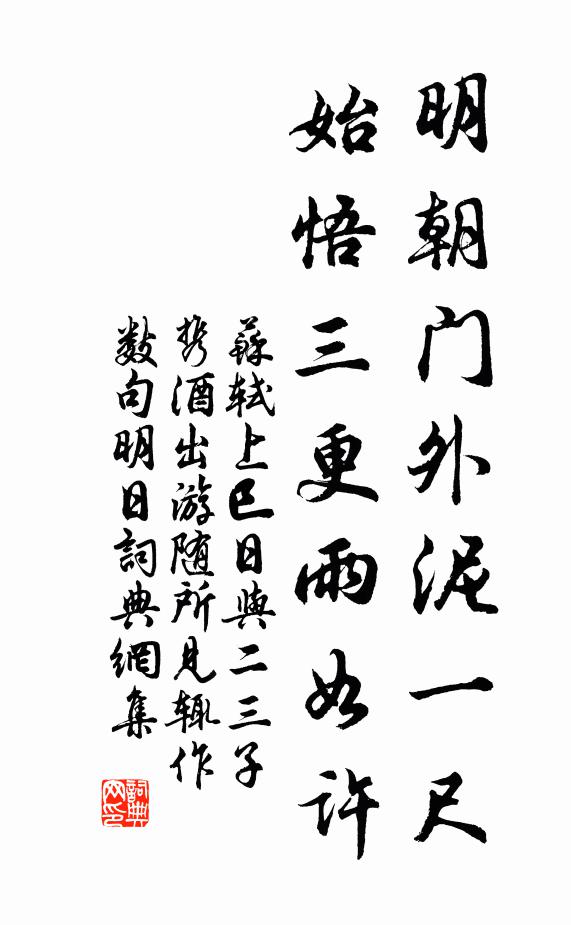 明朝门外泥一尺
始悟三更雨如许
蘇軾上巳日與二三子
携酒出游随所見輒作
數句明日詞典網集
詞典網印